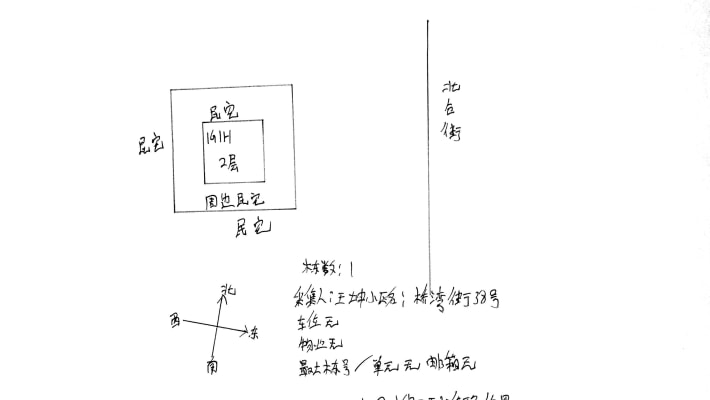 北
台
街
民宅
民宅
1介1H
2层
周边民宅
民宅
栋数:1
北
西
东
南
采集人:王坤小区名:桥湾街38号
车位无
物业无
最大栋号/单元无 邮箱无